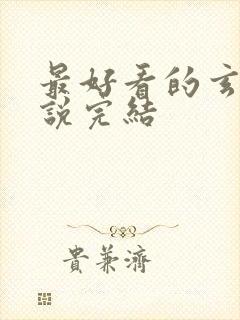 最好看的玄
說完結
貴兼濟